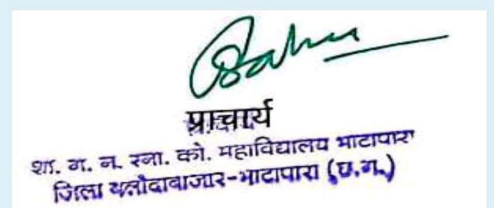 प्राचार्य
शा. ग. न. स्ना. को. महाविद्यालय भाटापारा
जिला बलौदाबाजार-भाटापारा (छ.ग.)